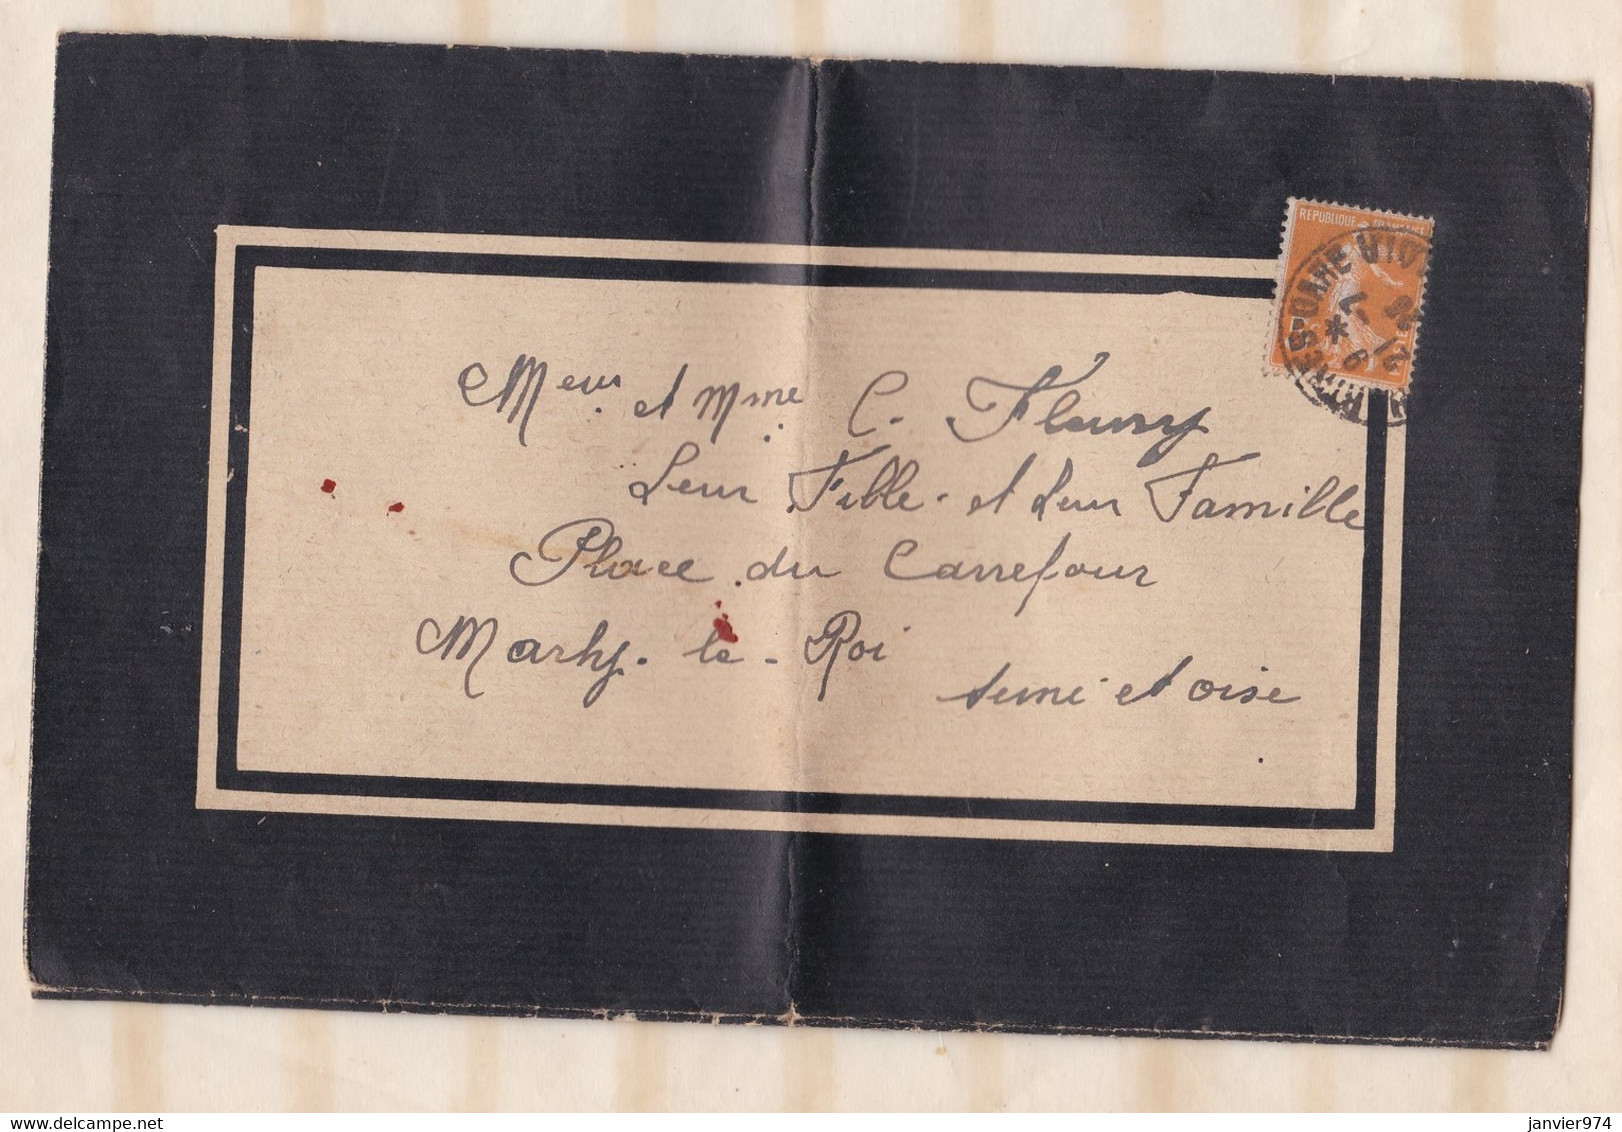 REPUBLIQUE FRANÇAISE
Meur. et Mme C. Fleury
Leur Fille - et Leur Famille
Place du Carrefour
Marly - le - Roi
seine et oise
janvier974